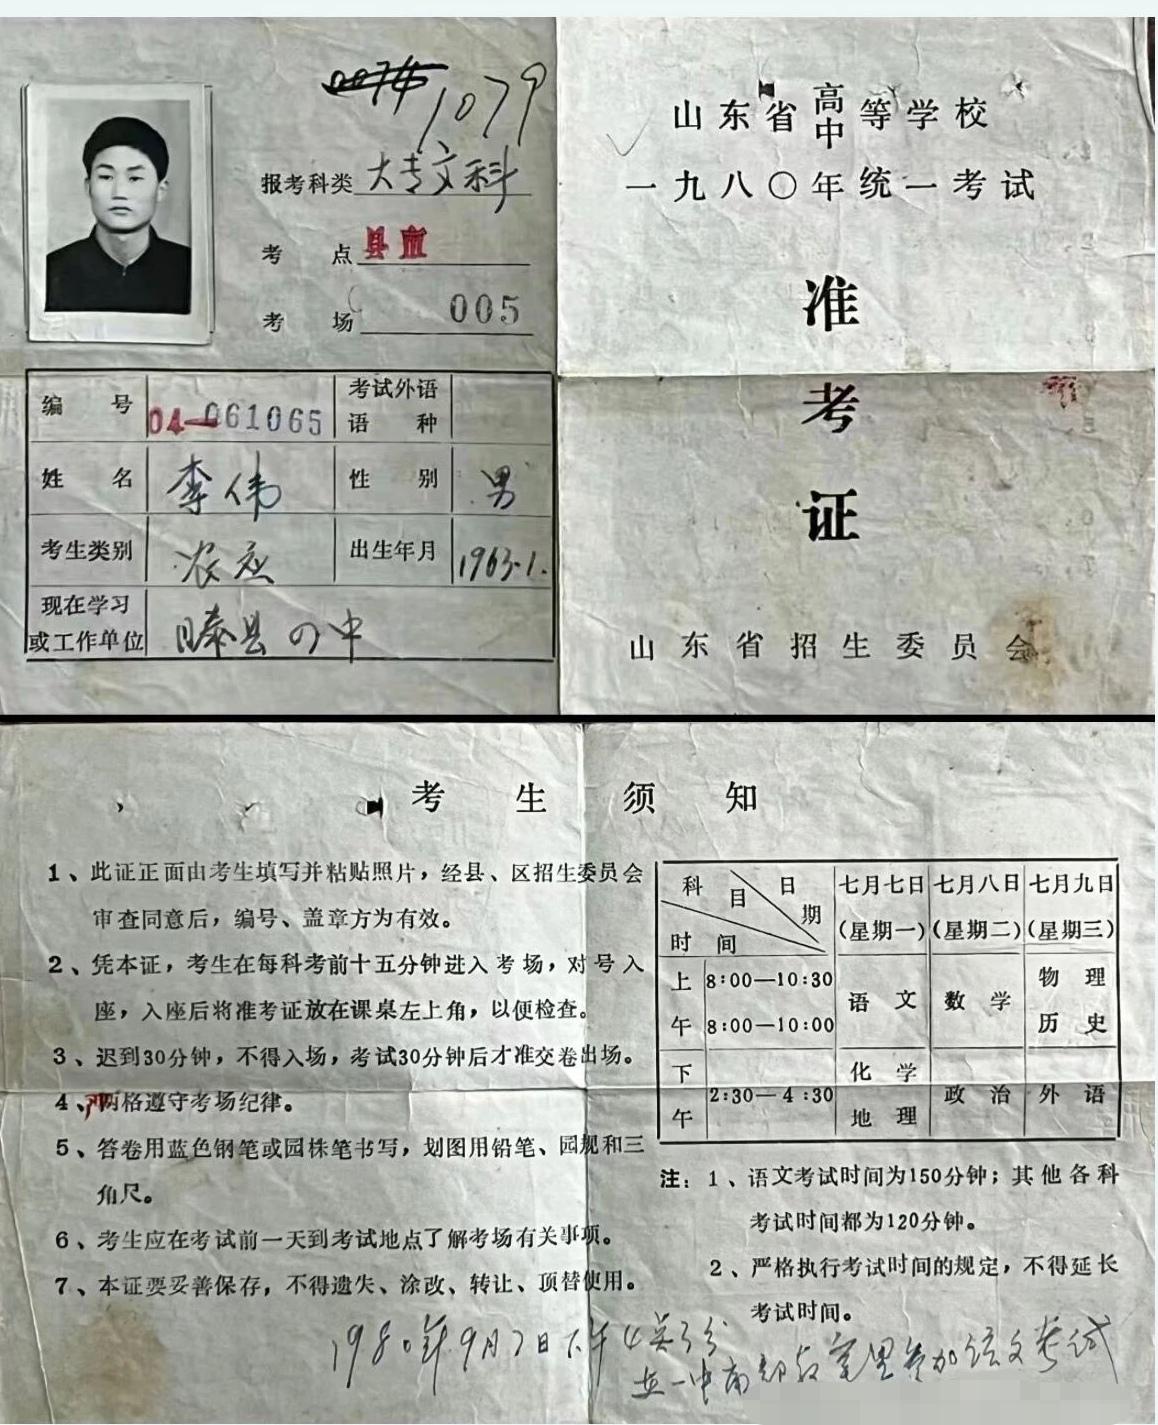 0074 1079
报考科类 大专文科
考点 县直
考场 005
编号 04-061065 考试外语语种
姓名 李伟 性别 男
考生类别 农应 出生年月 1963.1.
现在学习或工作单位 县四中
山东省高中等学校
一九八〇年统一考试
准
考
证
山东省招生委员会
考生须知
1、此证正面由考生填写并粘贴照片，经县、区招生委员会
审查同意后，编号、盖章方为有效。
2、凭本证，考生在每科考前十五分钟进入考场，对号入
座，入座后将准考证放在课桌左上角，以便检查。
3、迟到30分钟，不得入场，考试30分钟后才准交卷出场。
4、严格遵守考场纪律。
5、答卷用蓝色钢笔或园株笔书写，划图用铅笔、园规和三
角尺。
6、考生应在考试前一天到考试地点了解考场有关事项。
7、本证要妥善保存，不得遗失、涂改、转让、顶替使用。
科目 日期 时间 七月七日（星期一） 七月八日（星期二） 七月九日（星期三）
上午 8:00—10:30 语文 数学 物理
8:00—10:00 历史
下午 2:30—4:30 化学 政治 外语
地理
注：1、语文考试时间为150分钟；其他各科
考试时间都为120分钟。
2、严格执行考试时间的规定，不得延长
考试时间。
1980年9月7日下午
在一中南部教室里参加语文考试